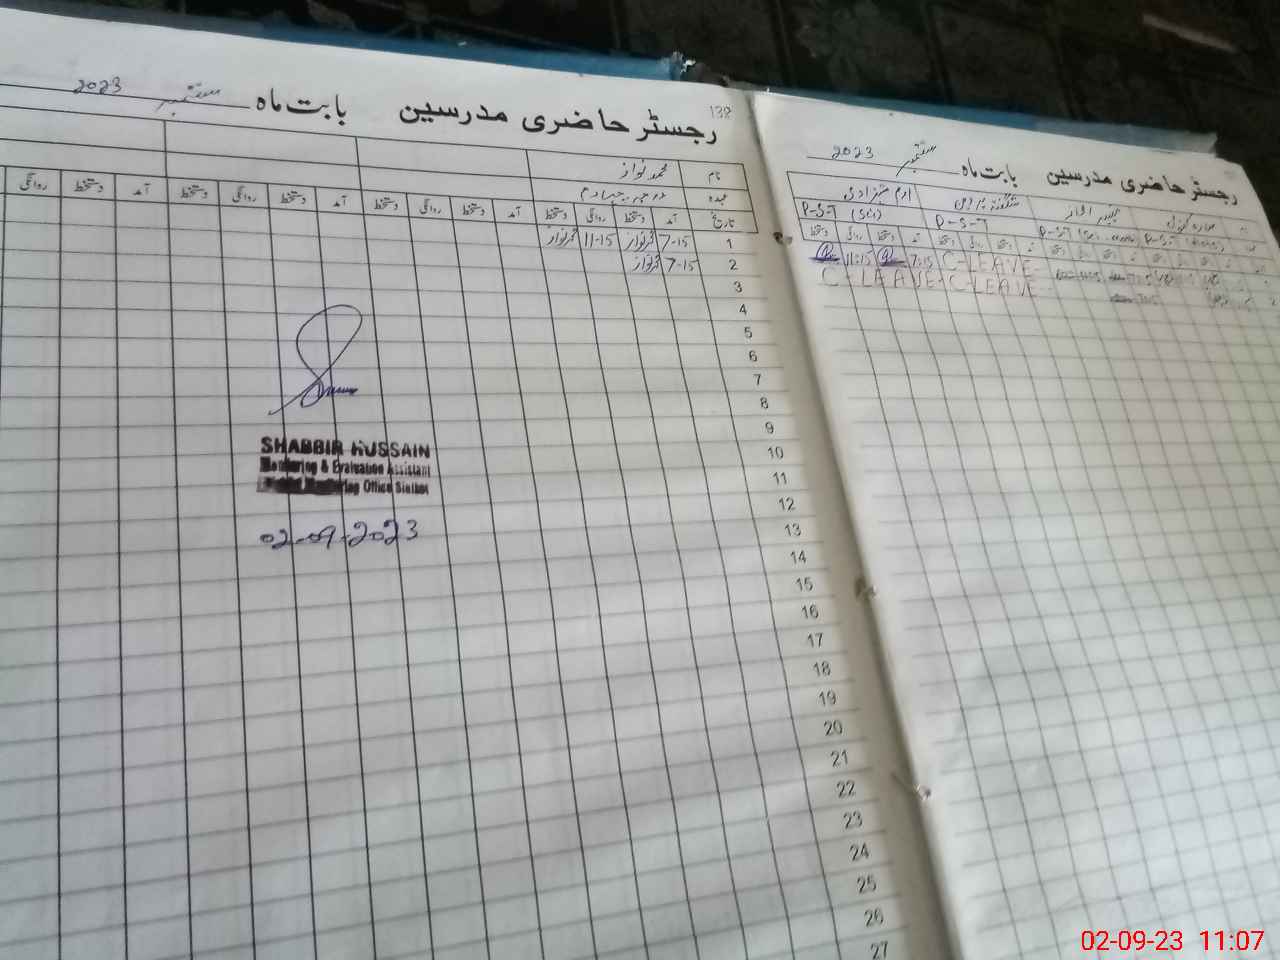 138
رجسٹر حاضری مدرسین بابت ماہ ستمبر 2023
نام محمد نواز
عہدہ درجہ چہارم
تاریخ آمد دستخط روانگی دستخط آمد دستخط روانگی دستخط آمد دستخط روانگی دستخط آمد دستخط روانگی
1 7-15 محمد نواز 11-15 محمد نواز
2 7-15 محمد نواز
3
4
5
6
7
8
9
10
11
12
13
14
15
16
17
18
19
20
21
22
23
24
25
26
27
SHABBIR HUSSAIN
Monitoring & Evaluation Assistant
Monitoring Office Sialkot
02-09-2023
رجسٹر حاضری مدرسین بابت ماہ ستمبر 2023
شگفتہ پروین ارم شہزادی
P-S-T P-S-T P-S-T P-S-T (Sci)
C-LEAVE- 7:15 11:15
C-LEAVE- C-LEAVE-
02-09-23 11:07